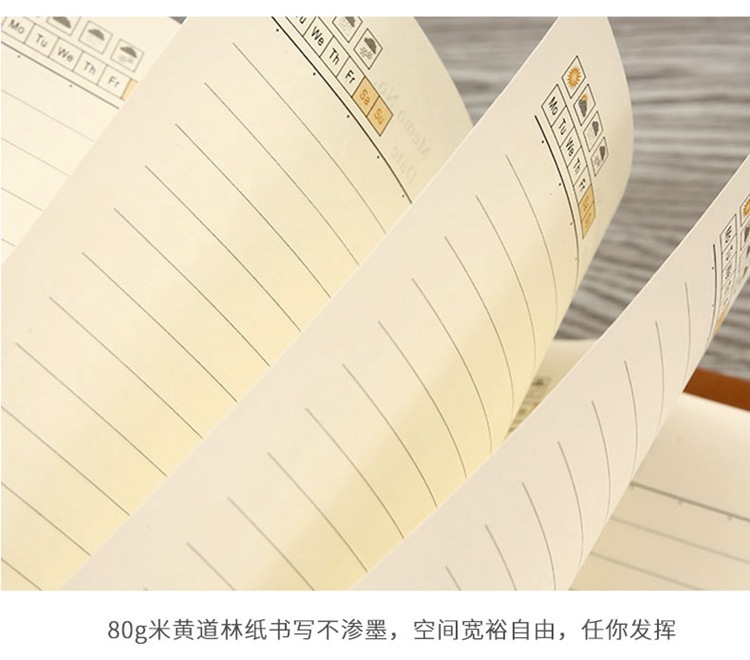 Mo Tu We Th Fr
We Th Fr Sa Su
Memo No.
Date
Mo Tu We Th Fr
80g米黄道林纸书写不渗墨，空间宽裕自由，任你发挥